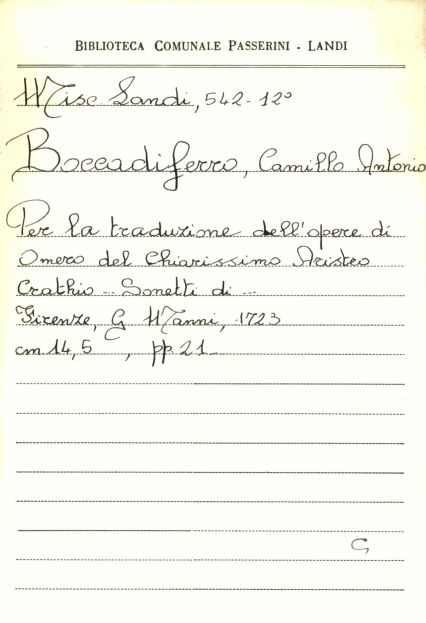 BIBLIOTECA COMUNALE PASSERINI - LANDI
Misc Landi, 542-12°
Boccadiferro, Camillo Antonio
Per la traduzione dell'opere di
Omero del Chiarissimo Aristeo
Crathio ... Sonetti di ...
Firenze, G Manni, 1723
cm 14,5 , pp. 21
G